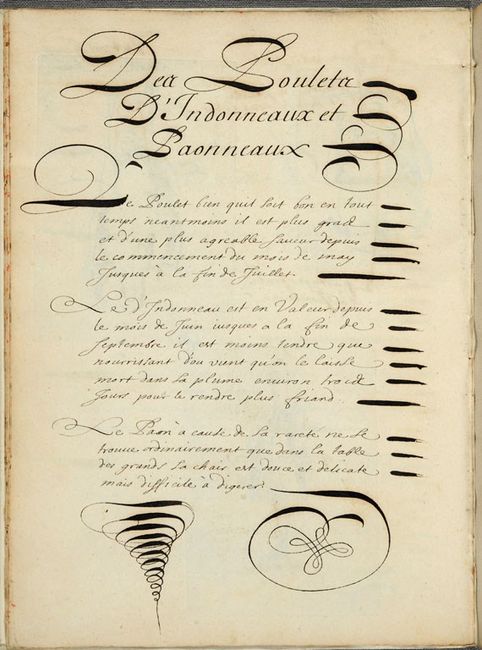 Des Poulets
D'Indonneaux et
Paonneaux
Le Poulet bien quil soit bon en tout
temps neantmoins il est plus grad
et d'une plus agreable saueur depuis
le commencement du mois de may
Jusques à la fin de Juillet.
Le d'Indonneau est en Valeur depuis
le mois de Juin iusques a la fin de
septembre il est moins tendre que
nourrissant d'ou vient qu'on le laisse
mort dans sa plume enuiron trois
Jours pour le rendre plus friand.
Le Paon à cause de sa rareté ne se
trouue ordinairement que dans la table
des grands sa chair est douce et delicate
mais difficile à digerer.